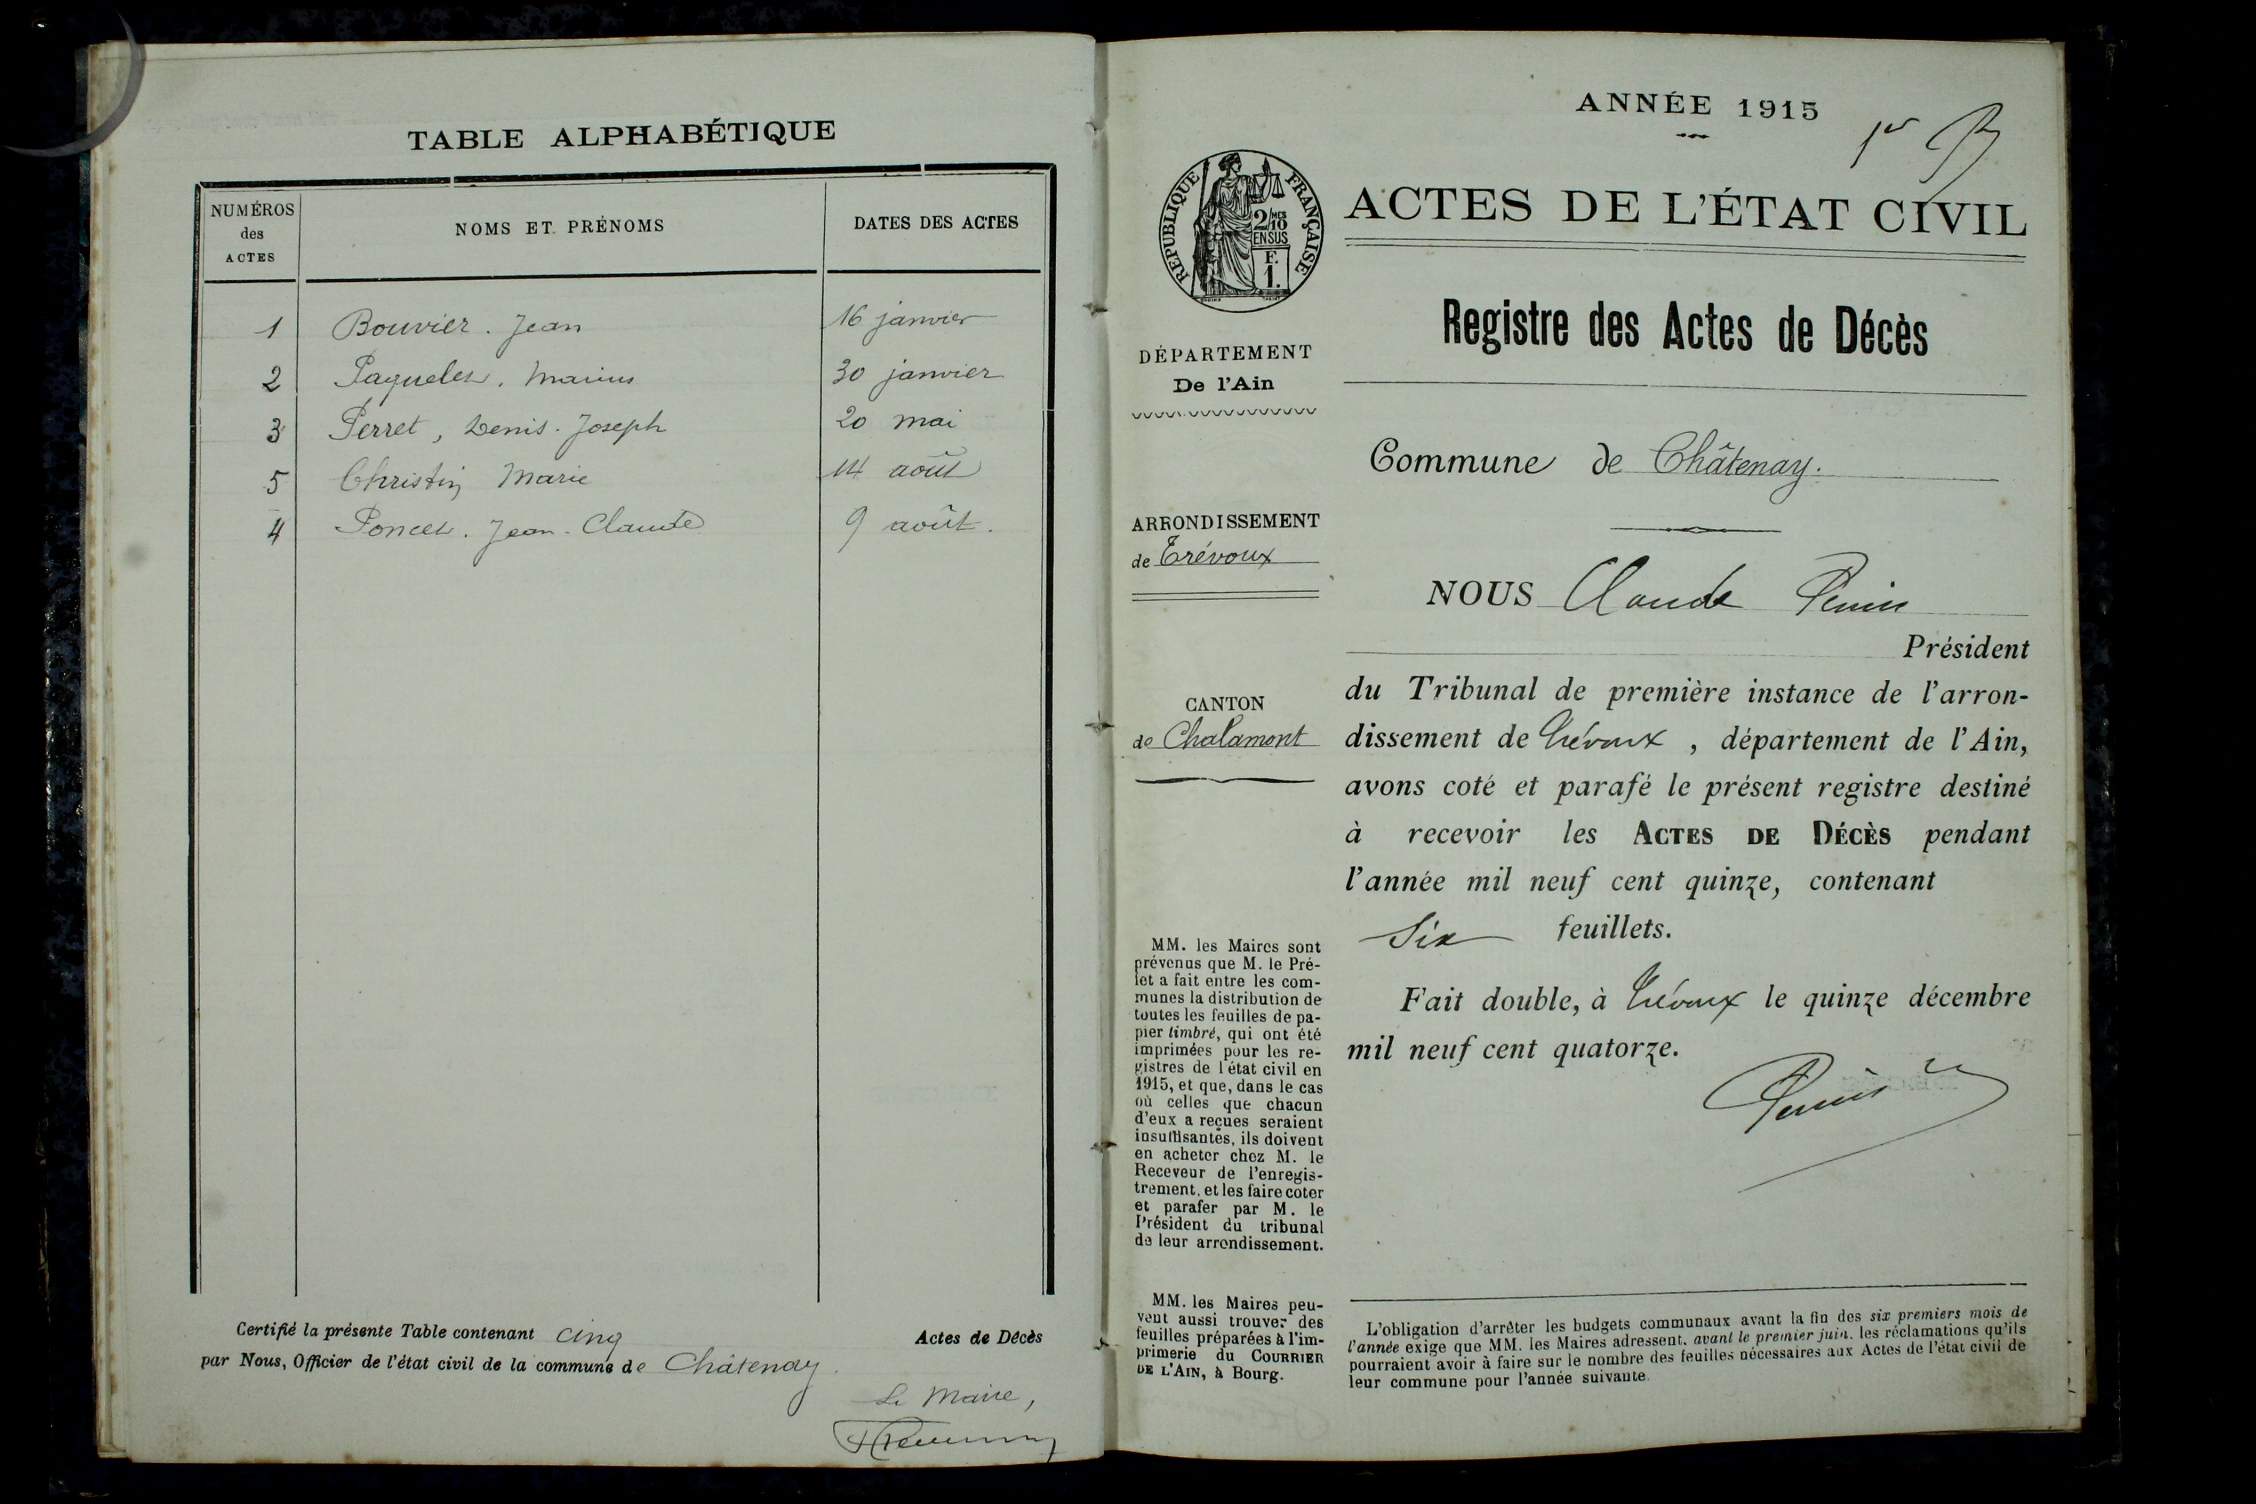 TABLE ALPHABÉTIQUE
NUMÉROS
des
ACTES
NOMS ET PRÉNOMS
DATES DES ACTES
1 Bouvier. Jean 16 janvier
2 Paquelet, Marius 30 janvier
3 Perret, Denis-Joseph 20 mai
5 Christin Marie 14 août
4 Poncet. Jean-Claude 9 août.
Certifié la présente Table contenant cinq Actes de Décès
par Nous, Officier de l'état civil de la commune de Châtenay.
Le Maire,
ANNÉE 1915
1er
RÉPUBLIQUE FRANÇAISE
2/MES
10
EN SUS
F.
1.
ACTES DE L'ÉTAT CIVIL
Registre des Actes de Décès
DÉPARTEMENT
De l'Ain
ARRONDISSEMENT
de Trévoux
CANTON
de Chalamont
MM. les Maires sont
prévenus que M. le Pré-
fet a fait entre les com-
munes la distribution de
toutes les feuilles de pa-
pier timbré, qui ont été
imprimées pour les re-
gistres de l'état civil en
1915, et que, dans le cas
où celles que chacun
d'eux a reçues seraient
insuffisantes, ils doivent
en acheter chez M. le
Receveur de l'enregis-
trement, et les faire coter
et parafer par M. le
Président du tribunal
de leur arrondissement.
MM. les Maires peu-
vent aussi trouver des
feuilles préparées à l'im-
primerie du COURRIER
DE L'AIN, à Bourg.
Commune de Châtenay.
NOUS Claude
Président
du Tribunal de première instance de l'arron-
dissement de Trévoux, département de l'Ain,
avons coté et parafé le présent registre destiné
à recevoir les ACTES DE DÉCÈS pendant
l'année mil neuf cent quinze, contenant
Six feuillets.
Fait double, à Trévoux le quinze décembre
mil neuf cent quatorze.
L'obligation d'arrêter les budgets communaux avant la fin des six premiers mois de
l'année exige que MM. les Maires adressent, avant le premier juin, les réclamations qu'ils
pourraient avoir à faire sur le nombre des feuilles nécessaires aux Actes de l'état civil de
leur commune pour l'année suivante.